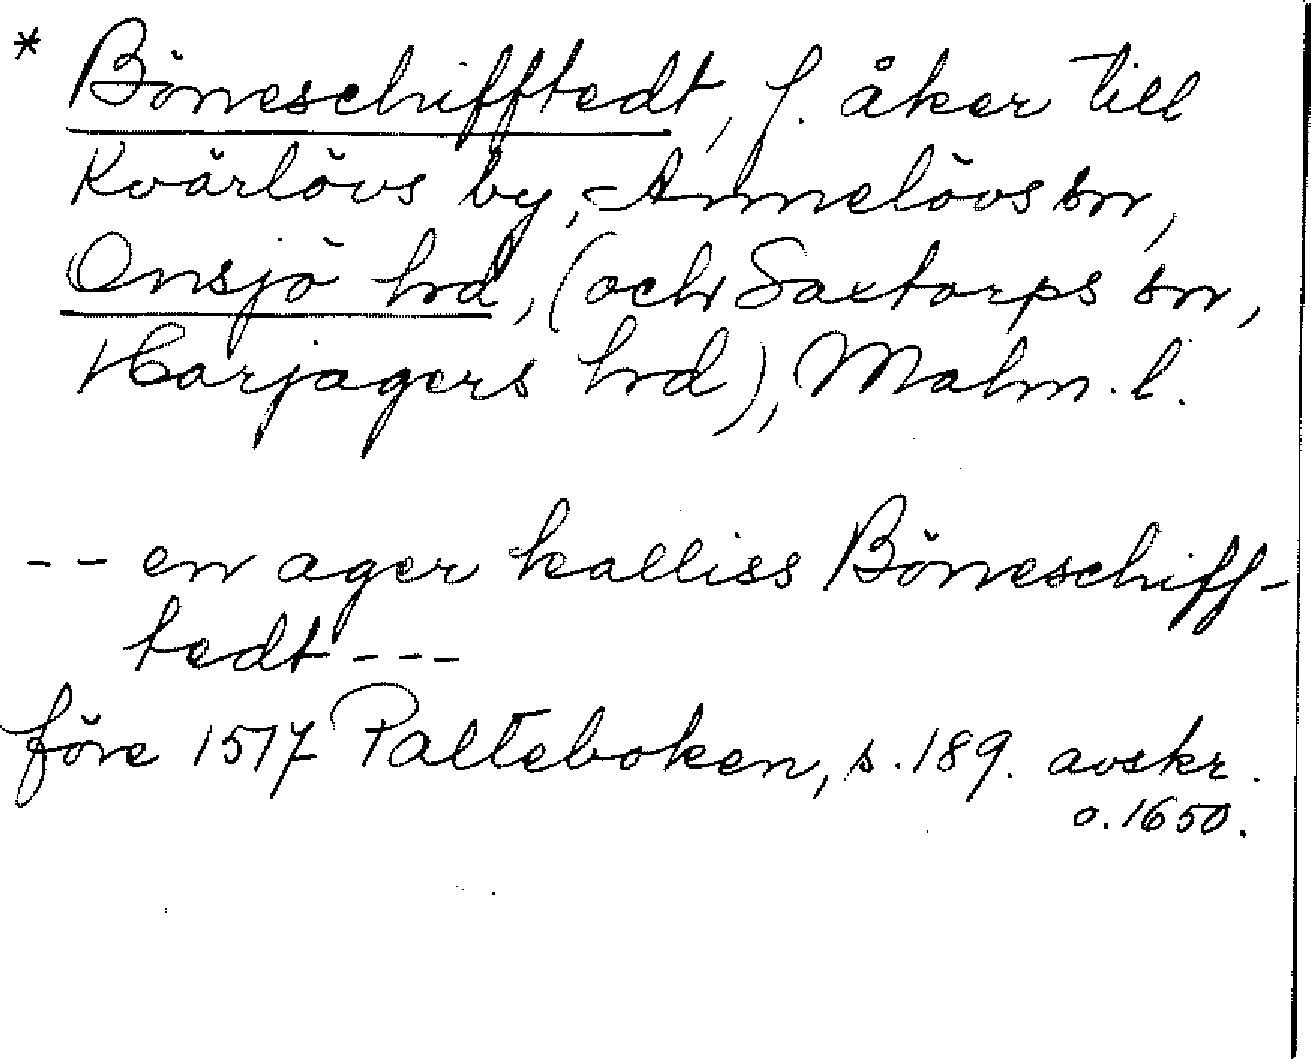 * Böneschifftedt, f. åker till
Kvärlövs by, Annelövs sn,
Onsjö hd, (och Saxtorps sn,
Harjagers hd), Malm. l.
-- en ager kalliss Böneschiff-
tedt ---
före 1517 Palteboken, s. 189. avskr.
o. 1650.